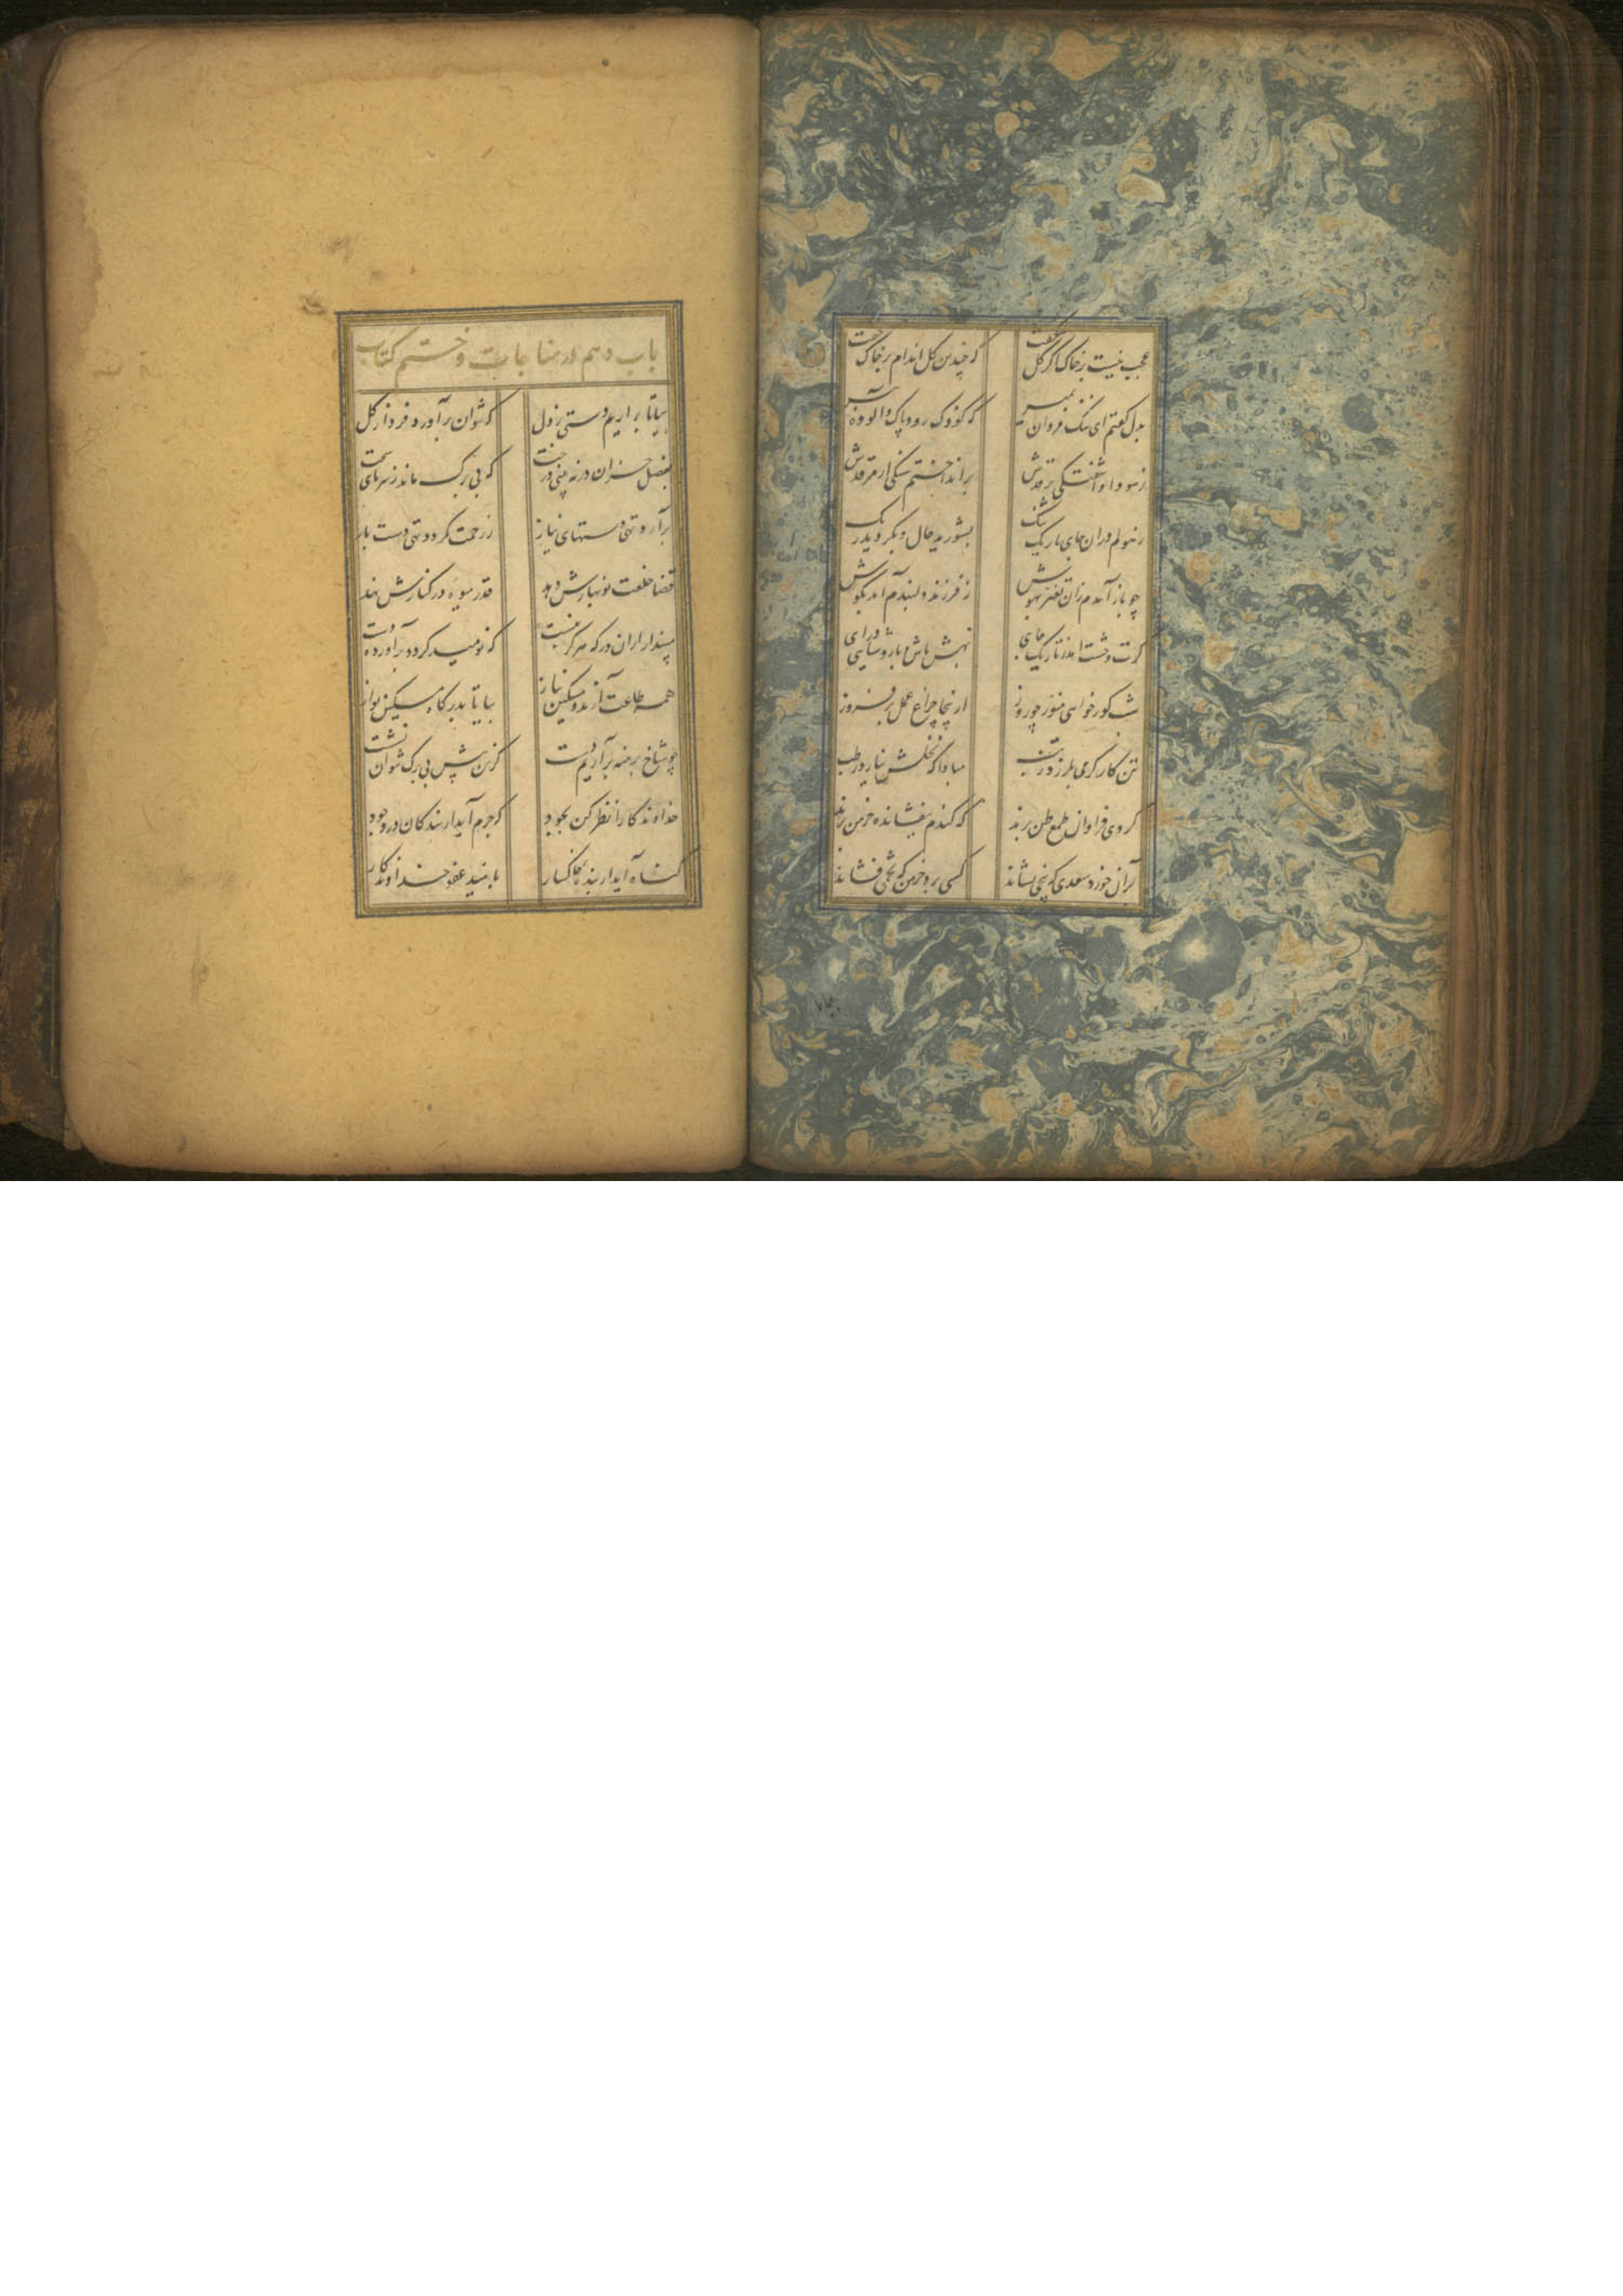 عجب نیست بر خاک اگر گل شکفت که چندین گل اندام بر خاک خفت
بدل گفتم ای ننگ مردان بمیر که کودک رود پاک و آلوده پیر
ز سودا و آشفتگی بر قدش برانداختم سنگی از مرقدش
ز هولم در آن جای تاریک تنگ بشورید حال و بگردید رنگ
چو باز آمدم زان تغیر بهوش ز فرزند دلبندم آمد بگوش
گرت وحشت آمد ز تاریک جای بهش باش و با روشنایی درآی
شب گور خواهی منور چو روز از اینجا چراغ عمل برفروز
تن کارکن می بلرزد ز تب مبادا که نخلش نیارد رطب
گروهی فراوان طمع ظن برند که گندم نیفشانده خرمن برند
بر آن خورد سعدی که بیخی نشاند کسی برد خرمن که تخمی فشاند
باب دهم در مناجات و ختم کتاب
بیا تا برآریم دستی ز دل که نتوان برآورد فردا ز گل
بفصل خزان در نه بینی درخت که بی برگ ماند ز سرمای سخت
برآرد تهی دستهای نیاز ز رحمت نگردد تهی دست باز
قضا خلعت نوبهارش دهد قدر میوه در کنارش نهد
مپندار از آن در که هرگز نبست که نومید گردد برآورده دست
همه طاعت آرند و مسکین نیاز بیا تا بدرگاه مسکین نواز
چو شاخ برهنه برآریم دست که زین بیش بی برگ نتوان نشست
خداوندگارا نظر کن بجود که جرم آید از بندگان در وجود
گناه آید از بنده خاکسار بامید عفو خداوندگار